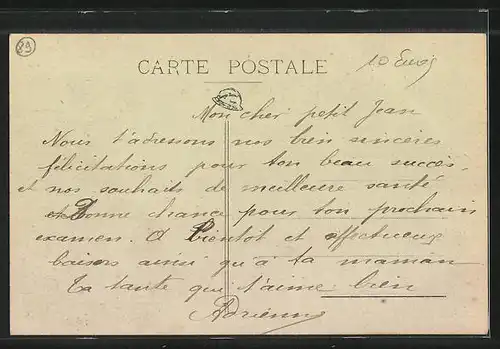 89
CARTE POSTALE
10 Euros
Mon cher petit Jean
Nous t'adressons nos bien sincères
félicitations pour ton beau succès,
et nos souhaits de meilleure santé
et Bonne chance pour ton prochain
examen. A Bientôt et affectueux
baisers ainsi qu'à ta maman
Ta tante qui t'aime bien
Adrienne